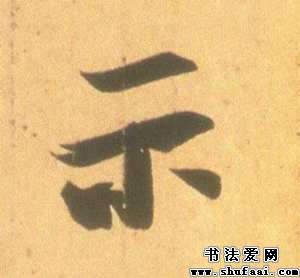 示
书法爱网
www.shufaai.com